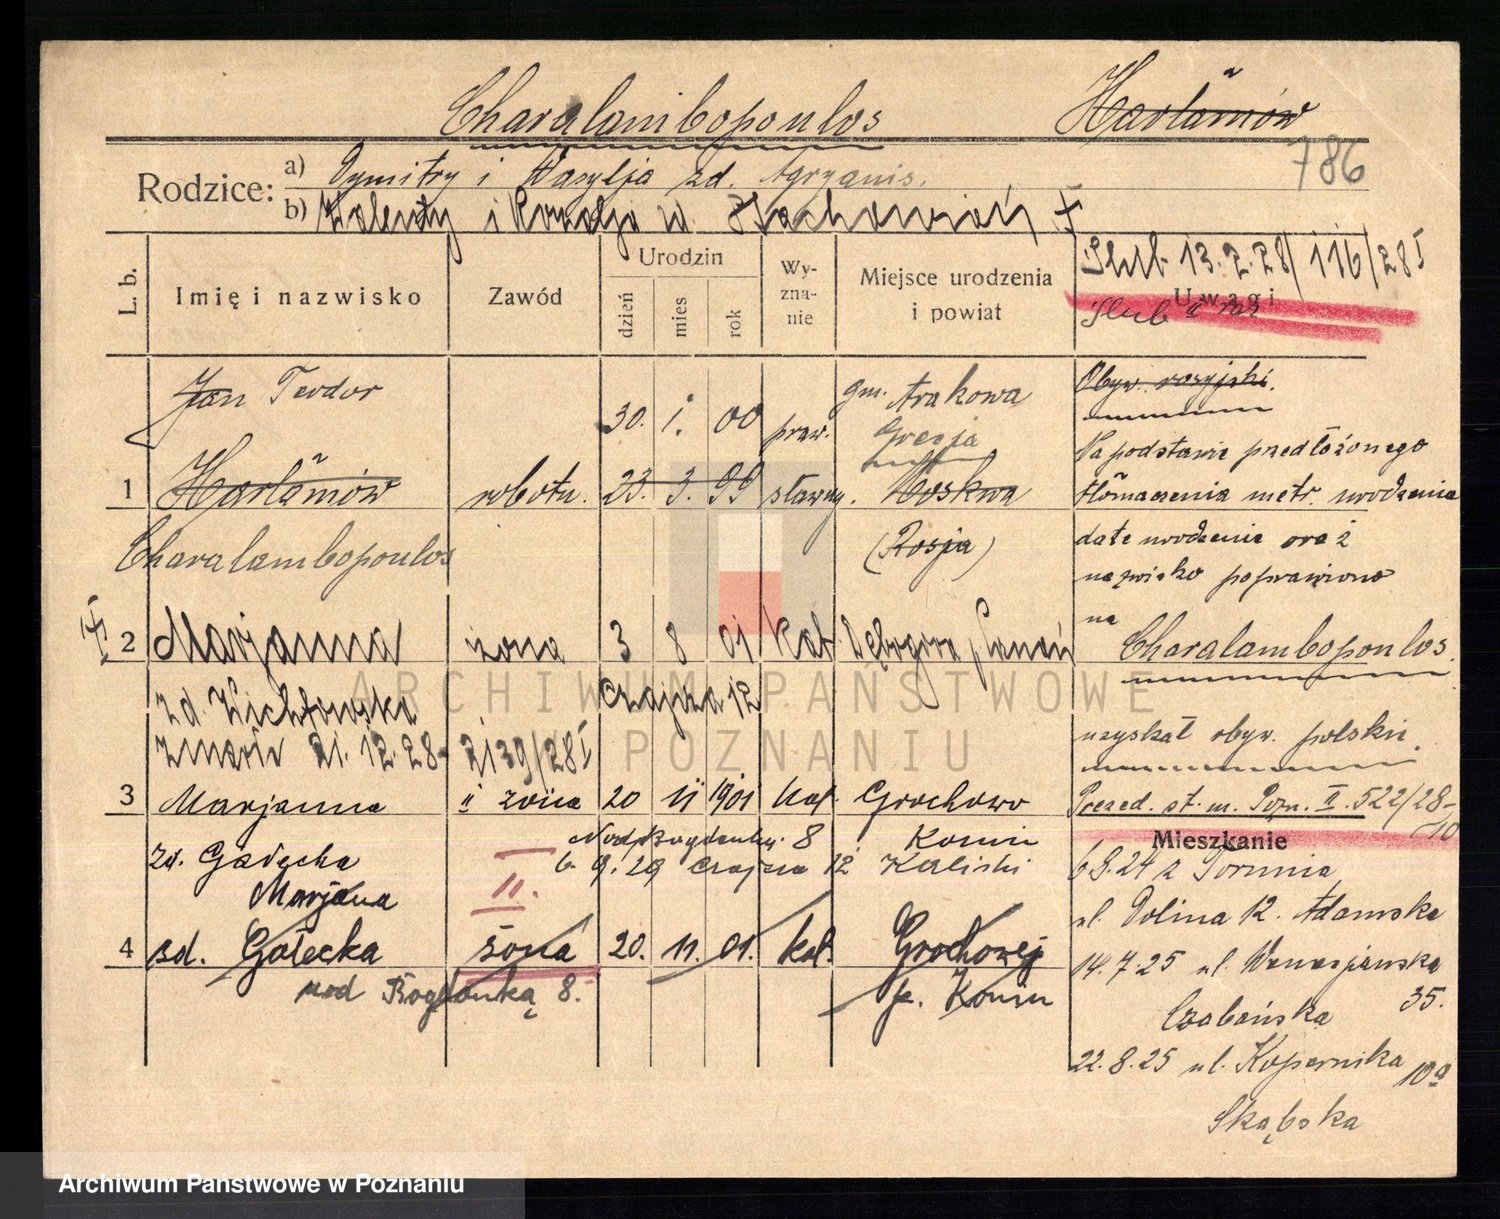 Charalambopoulos Harłamów
786
Rodzice: a) Dymitry i Wasylja zd. Agryanis.
b) Walenty i Rozalja
Ślub 13.2.28/116/28 I
L. b. Imię i nazwisko Zawód Urodzin dzień mies rok Wyznanie Miejsce urodzenia i powiat Uwagi
Ślub II raz
Jan Teodor 30. 1. 00 praw. gm. Arakowa
Grecja
Obyw. rosyjski.
Na podstawie przedłożonego
1 Harłamów robotn. 23. 3. 99 sławny. Moskwa
(Rosja)
tłómaczenia metr. urodzenia
Charalambopoulos
datę urodzenia oraz
nazwisko poprawiono
na
Charalambopoulos.
2 Marjanna żona 3 8 01 kat Dębogóra,
zd. Wichłowska Czajcza 12
zmarła 21.12.28 2139/28 I
uzyskał obyw. polskie.
3 Marjanna II żona 20 11 1901 kat. Grochowo
Przed. st. m. Pozn. II. 522/28-10
zd. Gałęcka Nad Bogdanką. 8 Konin
6. 9. 29 Czajcza 12 Kaliski
Mieszkanie
6 8.24 z Torunia
II.
Marjana
ul. Dolina 12. Adamska
4 zd. Gałecka żona 20. 11. 01. kat. Grochowej
p. Konin
nad Bogdanką 8.
14.7.25 ul. 35.
Czabańska
22.8.25 ul. Kopernika 10a
Skąbska
ARCHIWUM PAŃSTWOWE
W POZNANIU
Archiwum Państwowe w Poznaniu